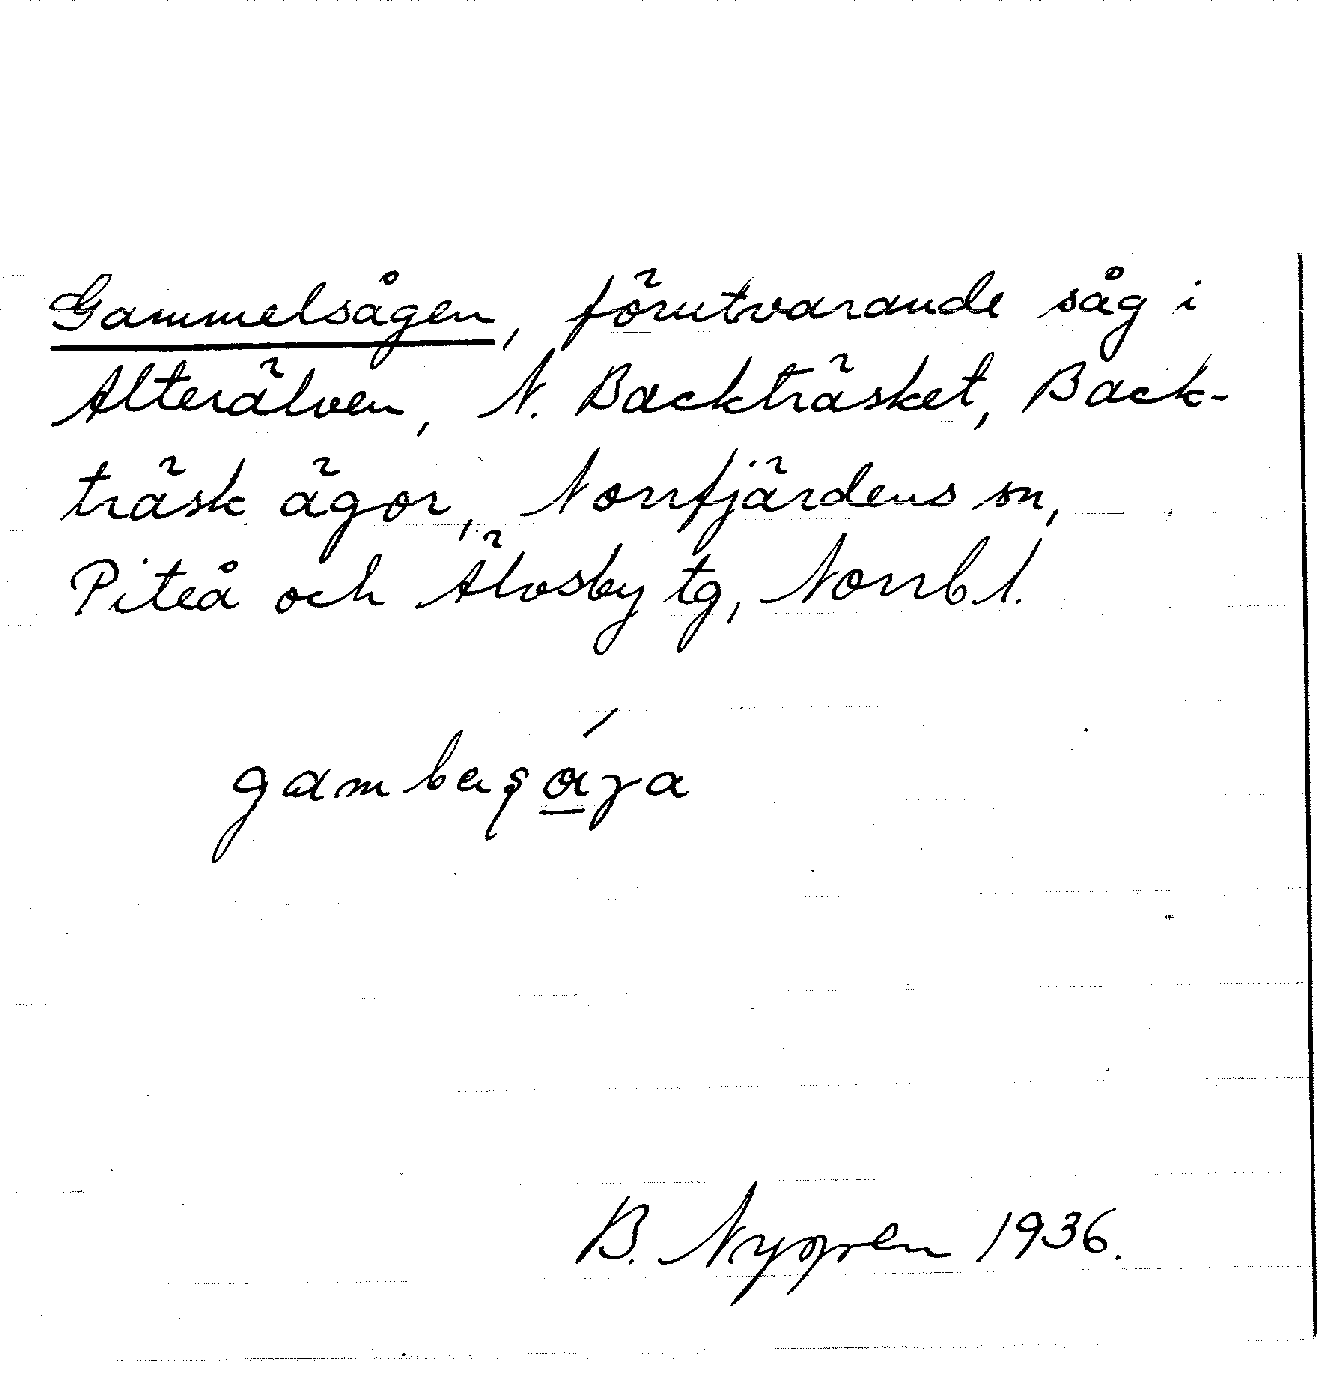 Gammelsågen, förutvarande såg i
Alterälven, N. Backträsket, Back-
träsk ägor, Norrfjärdens sn,
Piteå och Älvsby tg, Norrb l.
B. Nygren 1936.